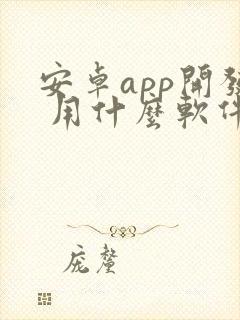 安卓app開發
用什麼軟件
庞鳌